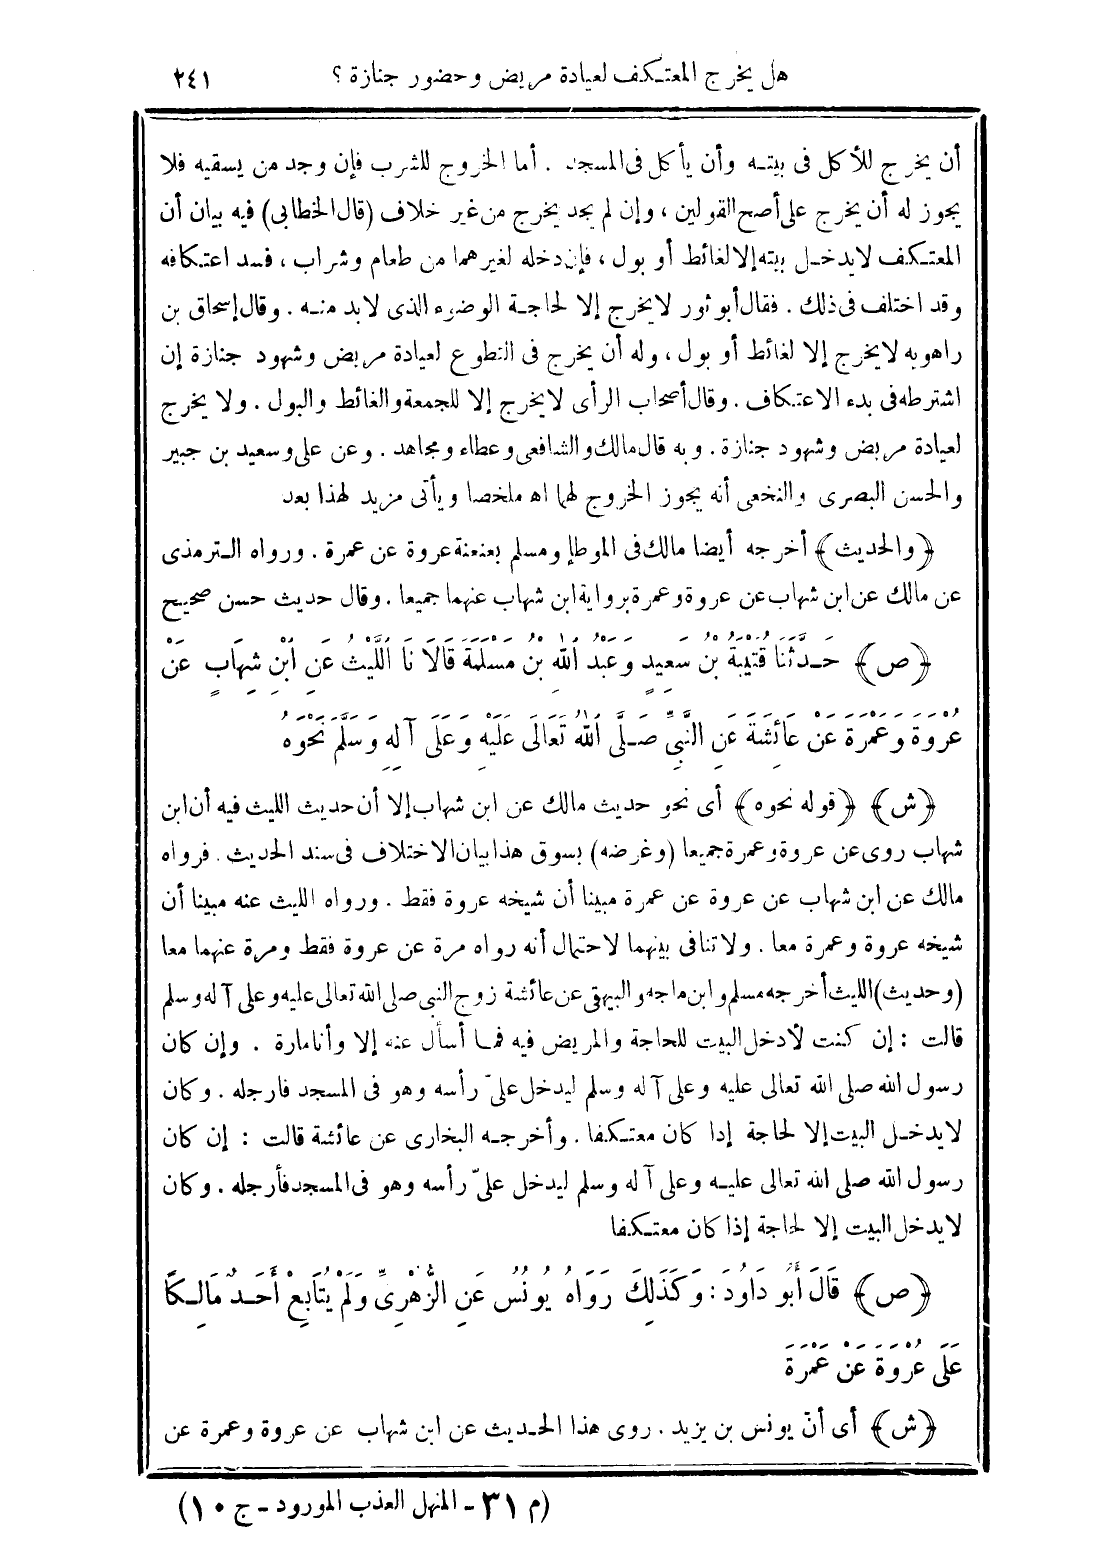 هل يخرج المعتكف لعيادة مريض وحضور جنازة ؟ ٢٤١
أن يخرج للأكل فى بيته وأن يأكل فى المسجد . أما الخروج للشرب فإن وجد من يسقيه فلا
يجوز له أن يخرج على أصح القولين ، وإن لم يجد يخرج من غير خلاف (قال الخطابى) فيه بيان أن
المعتكف لا يدخل بيته إلا لغائط أو بول ، فإن دخله لغيرهما من طعام وشراب ، فسد اعتكافه
وقد اختلف فى ذلك . فقال أبو ثور لا يخرج إلا لحاجة الوضوء الذى لابد منه . وقال إسحاق بن
راهويه لا يخرج إلا لغائط أو بول ، وله أن يخرج فى التطوع لعيادة مريض وشهود جنازة إن
اشترطه فى بدء الاعتكاف . وقال أصحاب الرأى لا يخرج إلا للجمعة والغائط والبول . ولا يخرج
لعيادة مريض وشهود جنازة . وبه قال مالك والشافعى وعطاء ومجاهد . وعن على وسعيد بن جبير
والحسن البصرى والنخعى أنه يجوز الخروج لهما اه ملخصا ويأتى مزيد لهذا بعد
﴿والحديث﴾ أخرجه أيضا مالك فى الموطإ ومسلم بعنعنة عروة عن عمرة . ورواه الترمذى
عن مالك عن ابن شهاب عن عروة وعمرة برواية ابن شهاب عنهما جميعا . وقال حديث حسن صحيح
﴿ص﴾ حَدَّثَنَا قُتَيْبَةُ بْنُ سَعِيدٍ وَعَبْدُ اللهِ بْنُ مَسْلَمَةَ قَالَا نَا اللَّيْثُ عَنِ ابْنِ شِهَابٍ عَنْ
عُرْوَةَ وَعَمْرَةَ عَنْ عَائِشَةَ عَنِ النَّبِيِّ صَلَّى اللهُ تَعَالَى عَلَيْهِ وَعَلَى آلِهِ وَسَلَّمَ نَحْوَهُ
﴿ش﴾ ﴿قوله نحوه﴾ أى نحو حديث مالك عن ابن شهاب إلا أن حديث الليث فيه أن ابن
شهاب روى عن عروة وعمرة جميعا (وغرضه) بسوق هذا بيان الاختلاف فى سند الحديث . فرواه
مالك عن ابن شهاب عن عروة عن عمرة مبينا أن شيخه عروة فقط . ورواه الليث عنه مبينا أن
شيخه عروة وعمرة معا . ولا تنافى بينهما لاحتمال أنه رواه مرة عن عروة فقط ومرة عنهما معا
(وحديث) الليث أخرجه مسلم وابن ماجه والبيهقى عن عائشة زوج النبى صلى الله تعالى عليه وعلى آله وسلم
قالت : إن كنت لأدخل البيت للحاجة والمريض فيه فما أسأل عنه إلا وأنا مارة . وإن كان
رسول الله صلى الله تعالى عليه وعلى آله وسلم ليدخل علىّ رأسه وهو فى المسجد فارجله . وكان
لا يدخل البيت إلا لحاجة إذا كان معتكفا . وأخرجه البخارى عن عائشة قالت : إن كان
رسول الله صلى الله تعالى عليه وعلى آله وسلم ليدخل علىّ رأسه وهو فى المسجد فأرجله . وكان
لا يدخل البيت إلا لحاجة إذا كان معتكفا
﴿ص﴾ قَالَ أَبُو دَاوُدَ : وَكَذَلِكَ رَوَاهُ يُونُسُ عَنِ الزُّهْرِىِّ وَلَمْ يُتَابِعْ أَحَدٌ مَالِكًا
عَلَى عُرْوَةَ عَنْ عَمْرَةَ
﴿ش﴾ أى أنّ يونس بن يزيد . روى هذا الحديث عن ابن شهاب عن عروة وعمرة عن
(م ٣١ - المنهل العذب المورود - ج ١٠)